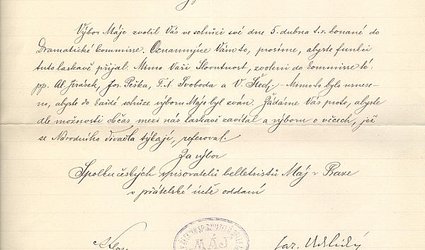 Výbor Máje zvolil Vás ve volební své dne 5. dubna t.r. konané do
Dramatické Commisse. Oznamujíce Vám to, prosíme, abyste funkci
tuto laskavě přijal. Mimo Vaši Slovutnost, zvoleni do commisse té
pp. Al. Jirásek, Jos. Píška, F. X. Svoboda a V. Štech. Nemoto bylo usneseno,
abyste do každé schůze výboru Máje byl zván. Žádáme Vás proto, abyste
dle možnosti občas mezi nás laskavě zavítal a výboru o věcech, jež
se Národního divadla týkají, referoval.
Za výbor
Spolku českých spisovatelů belletristů Máj v Praze
v přátelské úctě oddaní
MÁJ